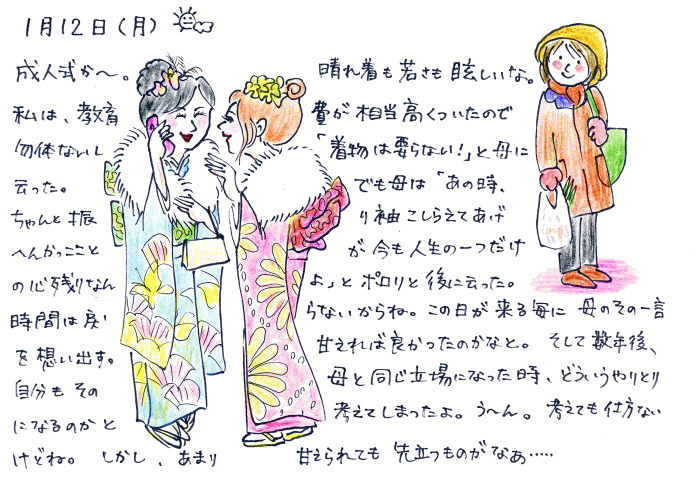 1月12日(月)
成人式か〜。 晴れ着も若さも眩しいな。
私は、教育 費が相当高くついたので
勿体ないし 「着物は要らない!」と母に
云った。 でも母は「あの時、
ちゃんと振 り袖こしらえてあげ
へんかったこと が今も人生の一つだけ
の心残りなん よ」とポロリと後に云った。
時間は戻 らないからね。この日が来る毎に 母のその一言
を想い出す。 甘えれば良かったのかなと。 そして数年後、
自分もその 母と同じ立場になった時、どういうやりとり
になるのかと 考えてしまったよ。う〜ん。考えても仕方ない
けどね。しかし、あまり 甘えられても 先立つものがなぁ……